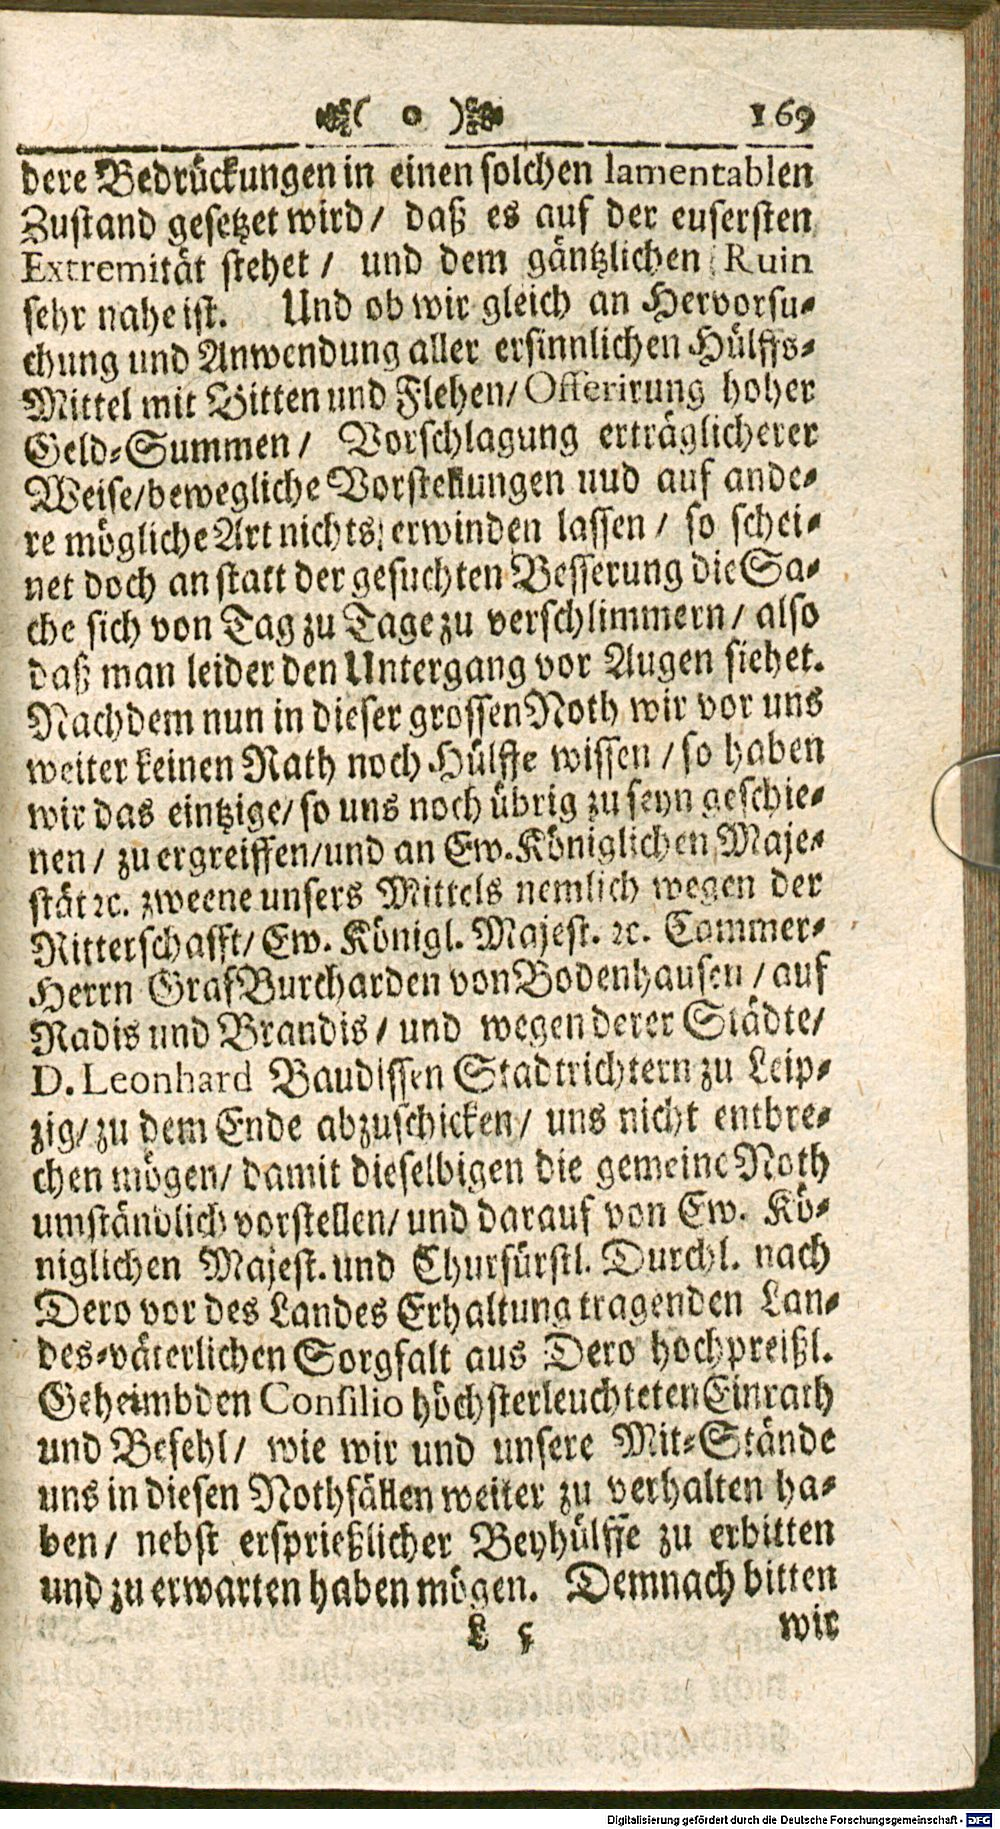 ( o ) 169
dere Bedrückungen in einen solchen lamentablen
Zustand gesetzet wird/ daß es auf der eusersten
Extremität stehet / und dem gäntzlichen Ruin
sehr nahe ist. Und ob wir gleich an Hervorsu-
chung und Anwendung aller ersinnlichen Hülffs-
Mittel mit Bitten und Flehen/ Offerirung hoher
Geld-Summen / Vorschlagung erträglicherer
Weise/ bewegliche Vorstellungen uud auf ande-
re mögliche Art nichts erwinden lassen / so schei-
net doch an statt der gesuchten Besserung die Sa-
che sich von Tag zu Tage zu verschlimmern / also
daß man leider den Untergang vor Augen siehet.
Nachdem nun in dieser grossen Noth wir vor uns
weiter keinen Rath noch Hülffe wissen / so haben
wir das eintzige/ so uns noch übrig zu seyn geschie-
nen / zu ergreiffen/und an Ew. Königlichen Maje-
stät ꝛc. zweene unsers Mittels nemlich wegen der
Ritterschafft/ Ew. Königl. Majest. ꝛc. Cammer-
Herrn Graf Burcharden von Bodenhausen / auf
Radis und Brandis / und wegen derer Städte/
D. Leonhard Baudissen Stadtrichtern zu Leip-
zig/ zu dem Ende abzuschicken/ uns nicht entbre-
chen mögen/ damit dieselbigen die gemeine Noth
umständlich vorstellen/ und darauf von Ew. Kö-
niglichen Majest. und Churfürstl. Durchl. nach
Dero vor des Landes Erhaltung tragenden Lan-
des-väterlichen Sorgfalt aus Dero hochpreißl.
Geheimbden Consilio höchsterleuchteten Einrath
und Befehl/ wie wir und unsere Mit-Stände
uns in diesen Nothfällen weiter zu verhalten ha-
ben/ nebst ersprießlicher Beyhülffe zu erbitten
und zu erwarten haben mögen. Demnach bitten
L 5 wir
Digitalisierung gefördert durch die Deutsche Forschungsgemeinschaft - DFG